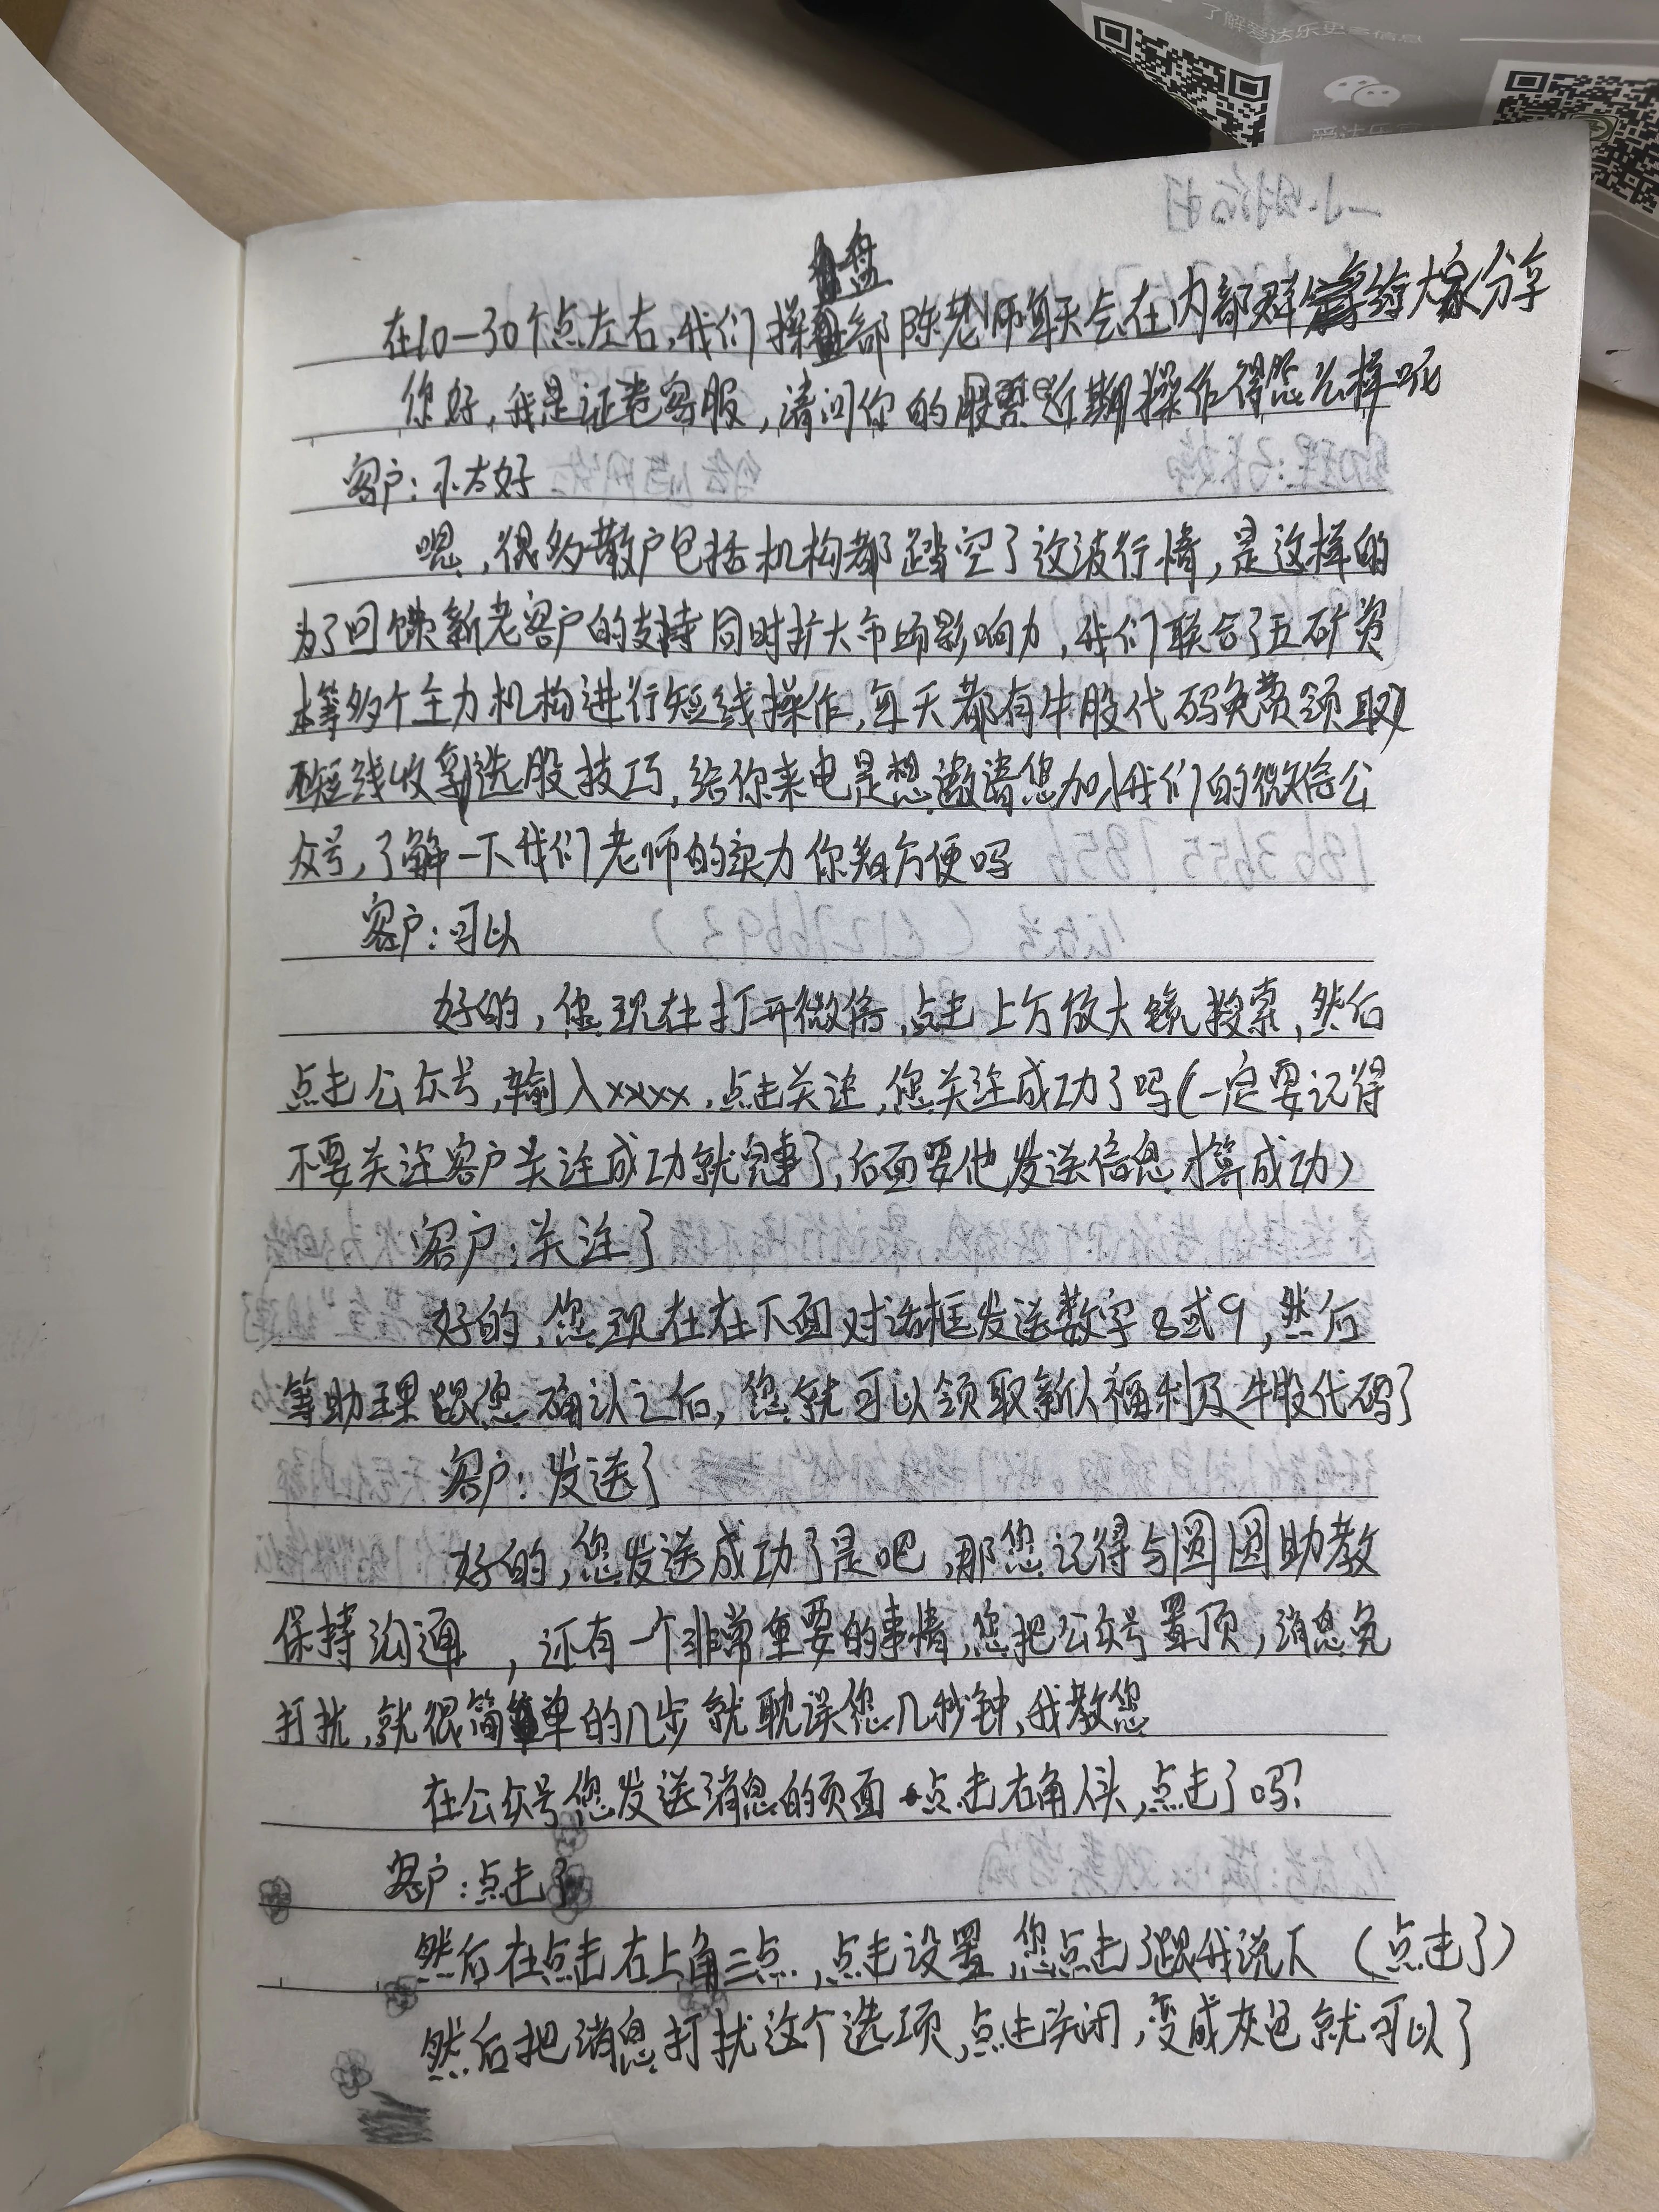 了解爱达乐更多信息
盘
在10-30个点左右,我们操盘部陈老师每天会在内部群给大家分享
你好,我是证卷客服,请问你的股票近期操作得怎么样呢
客户:不太好
嗯,很多散户包括机构都踏空了这波行情,是这样的
为了回馈新老客户的支持同时扩大市场影响力,我们联合了五矿资
本等多个主力机构进行短线操作,每天都有牛股代码免费领取
短线收割选股技巧,给你来电是想邀请您加入我们的微信公
众号,了解一下我们老师的实力你看方便吗
客户:可以
好的,您现在打开微信,点击上方放大镜搜索,然后
点击公众号,输入xxxx,点击关注,您关注成功了吗(一定要记得
不要关注客户关注成功就完事了,后面要他发送信息才算成功)
客户:关注了
好的,您现在在下面对话框发送数字8或9,然后
等助理跟您确认之后,您就可以领取新人福利及牛股代码了
客户:发送了
好的,您发送成功了是吧,那您记得与圆圆助教
保持沟通,还有一个非常重要的事情,您把公众号置顶,消息免
打扰,就很简单的几步就耽误您几秒钟,我教您
在公众号您发送消息的页面点击右角人头,点击了吗?
客户:点击了
然后在点击右上角三点,点击设置,您点击了跟我说下(点击了)
然后把消息打扰这个选项,点击关闭,变成灰色就可以了